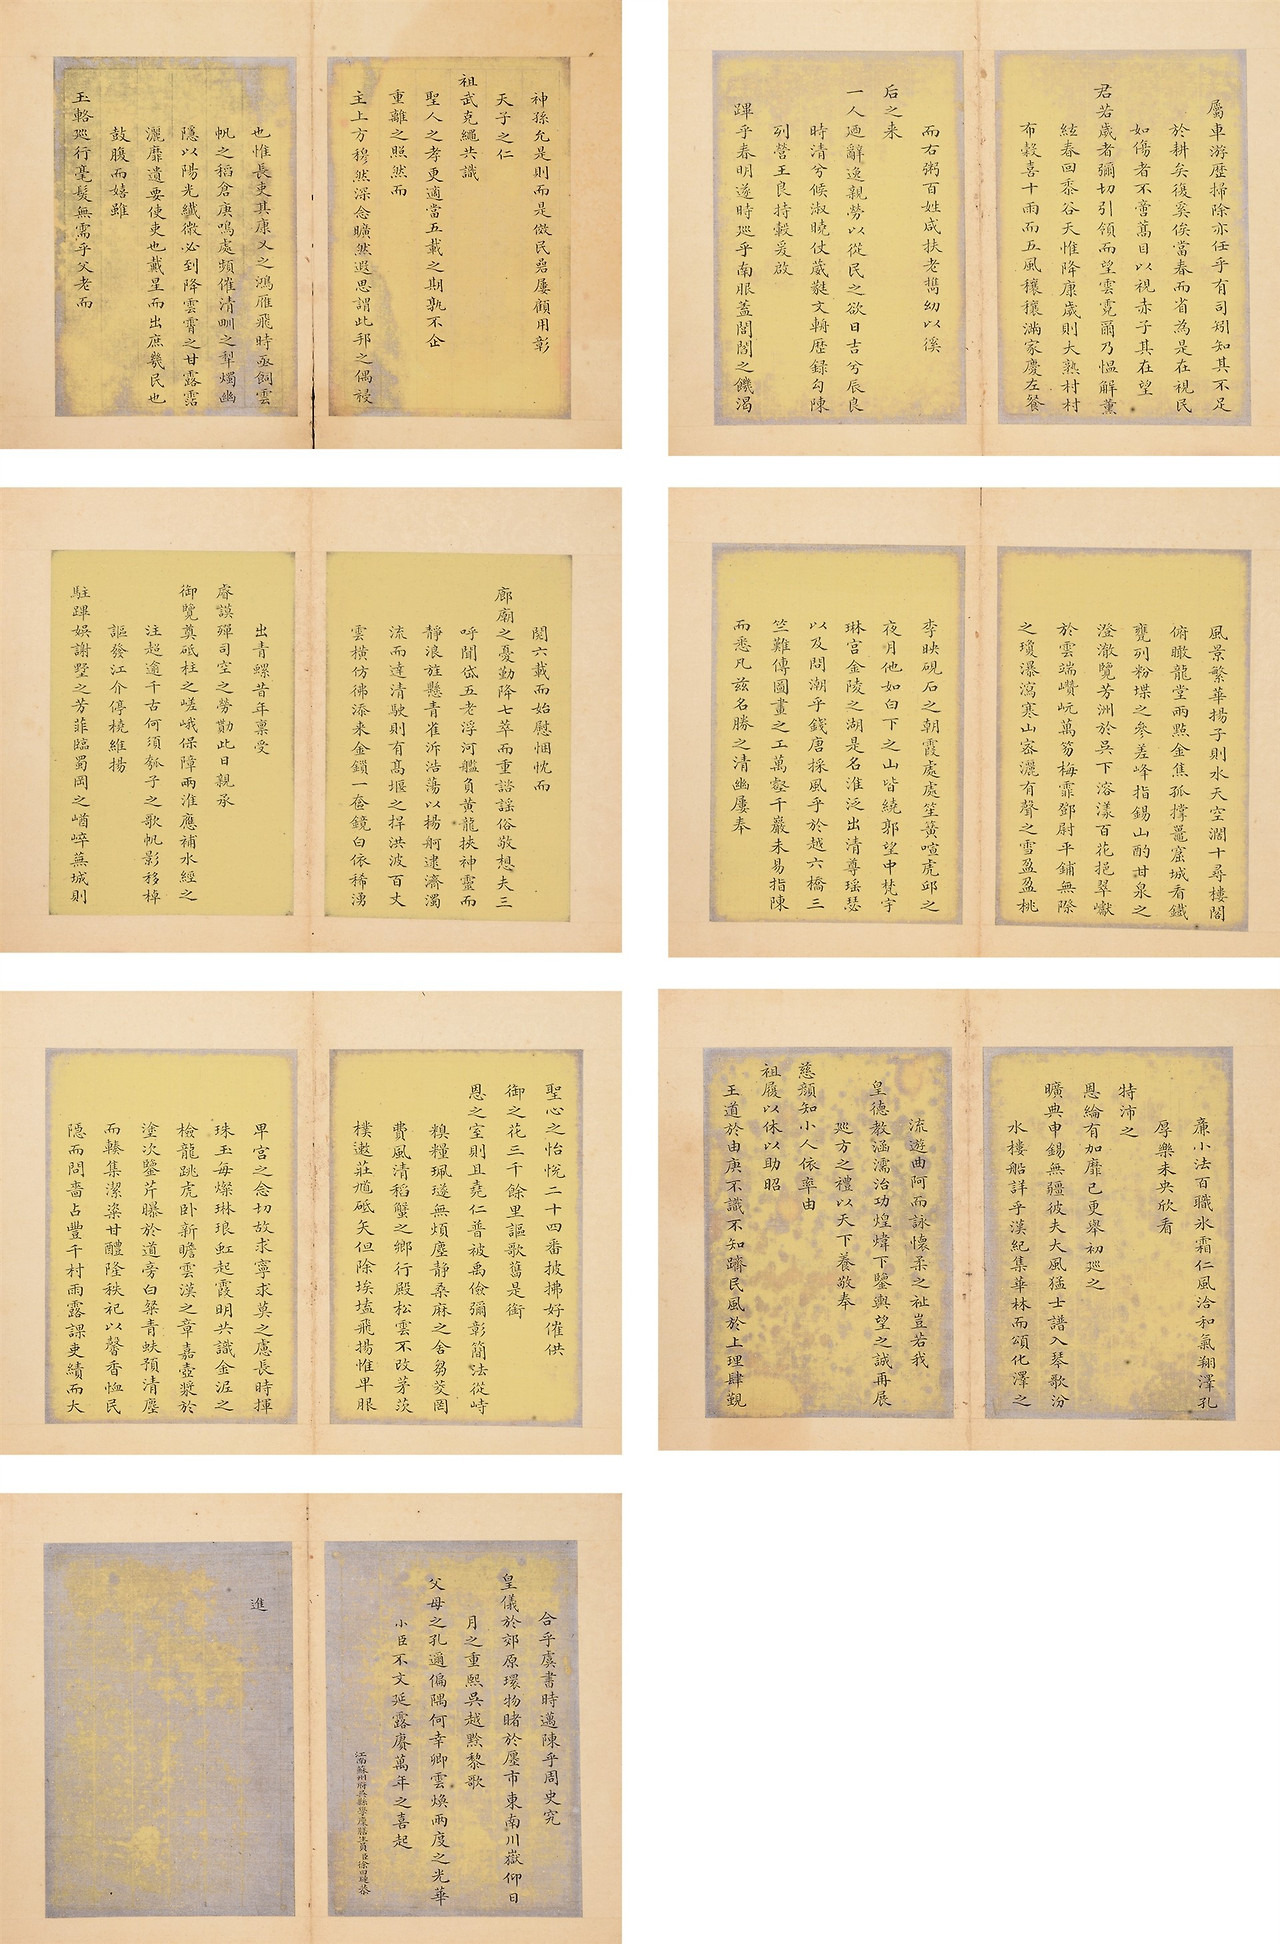 神孫允是則而是傚民碞屢顧用彰
天子之仁
祖武克繩共識
聖人之孝更適當五載之期孰不企
重離之照然而
主上方穆然深念曠然遐思謂此邦之偶祲
也惟長吏其康乂之鴻雁飛時亟飼雲
帆之稻倉庚鳴處頻催清甽之犁燭幽
隱以陽光纖微必到降雲霄之甘露霑
灑靡遺要使吏也戴星而出庶幾民也
鼓腹而嬉雖
玉輅巡行毫髮無需乎父老而
屬車游歷掃除亦任乎有司矧知其不足
於耕矣後奚俟當春而省為是在視民
如傷者不啻蒿目以視赤子其在望
君若歲者彌切引領而望雲霓爾乃慍解薰
絃春回黍谷天惟降康歲則大熟村村
布穀喜十雨而五風穰穰滿家慶左餐
而右粥百姓咸扶老攜幼以徯
后之来
一人迺辭逸親勞以從民之欲日吉兮辰良
時清兮候淑曉仗葳蕤文輈歷録勾陳
列營王良持轂爰啟
蹕乎春明遂時巡乎南服蓋閭閻之饑渴
関六載而始慰悃忱而
廊廟之憂勤降七萃而重諮謡俗敬想夫三
呼聞岱五老浮河艦負黄龍挾神靈而
靜浪旌懸青雀泝浩蕩以揚舸逮濟濁
流而達清駛則有髙堰之捍洪波百丈
雲橫仿彿添来金鎖一奩鏡白依稀湧
出青螺昔年禀受
睿謨殫司空之勞勩此日親承
御覽奠砥柱之嵯峨保障兩淮應補水經之
注超逾千古何須瓠子之歌帆影移棹
謳發江介停橈維揚
駐蹕娛謝墅之芳菲臨蜀岡之崷崒蕪城則
風景繁華揚子則水天空闊十尋樓閣
俯瞰龍堂兩點金焦孤撐鼉窟城看鐵
甕列粉堞之參差峰指錫山酌甘泉之
澄澈覽芳洲於吳下溶漾百花挹翠巘
於雲端巑岏萬笏梅霏鄧尉平鋪無際
之瓊瀑瀉寒山密灑有聲之雪盈盈桃
李映硯石之朝霞處處笙簧喧虎邱之
夜月他如白下之山皆繞郭望中梵宇
琳宮金陵之湖是名淮泛出清尊瑶瑟
以及問潮乎錢唐採風乎於越六橋三
竺難傳圖畫之工萬壑千巖未易指陳
而悉凡兹名勝之清幽屢奉
聖心之怡悅二十四番披拂好催供
御之花三千餘里謳歌舊是銜
恩之室則且堯仁普被禹儉彌彰簡法從峙
糗糧珮璲無煩塵靜桑麻之舍芻茭罔
費風清稻蟹之鄉行殿松雲不改茅茨
樸遬莊馗砥矢但除埃壒飛揚惟卑服
卑宮之念切故求寧求莫之慮長時揮
珠玉每燦琳琅虹起霞明共識金泥之
檢龍跳虎卧新瞻雲漢之章嘉壺漿於
塗次鑒芹曝於道旁白粲青蚨預清塵
而輳集潔粢甘醴隆秩祀以馨香恤民
隱而問耆占豐千村雨露課吏績而大
廉小法百職氷霜仁風洽和氣翔澤孔
厚樂未央欣看
特沛之
恩綸有加靡已更舉初巡之
曠典申錫無疆彼夫大風猛士譜入琴歌汾
水樓船詳乎漢紀集華林而頌化澤之
流遊曲阿而詠懷柔之祉豈若我
皇德教涵濡治功煌煒下鑒輿望之誠再展
巡方之禮以天下養敬奉
慈顏知小人依率由
祖履以休以助昭
王道於由庚不識不知躋民風於上理肆覲
合乎虞書時邁陳乎周史究
皇儀於郊原環物睹於廛市東南川嶽仰日
月之重熙吳越黔黎歌
父母之孔邇偏隅何幸卿雲煥兩度之光華
小臣不文延露賡萬年之喜起
江南蘇州府吳縣學廩膳生員臣徐曰璉恭
進